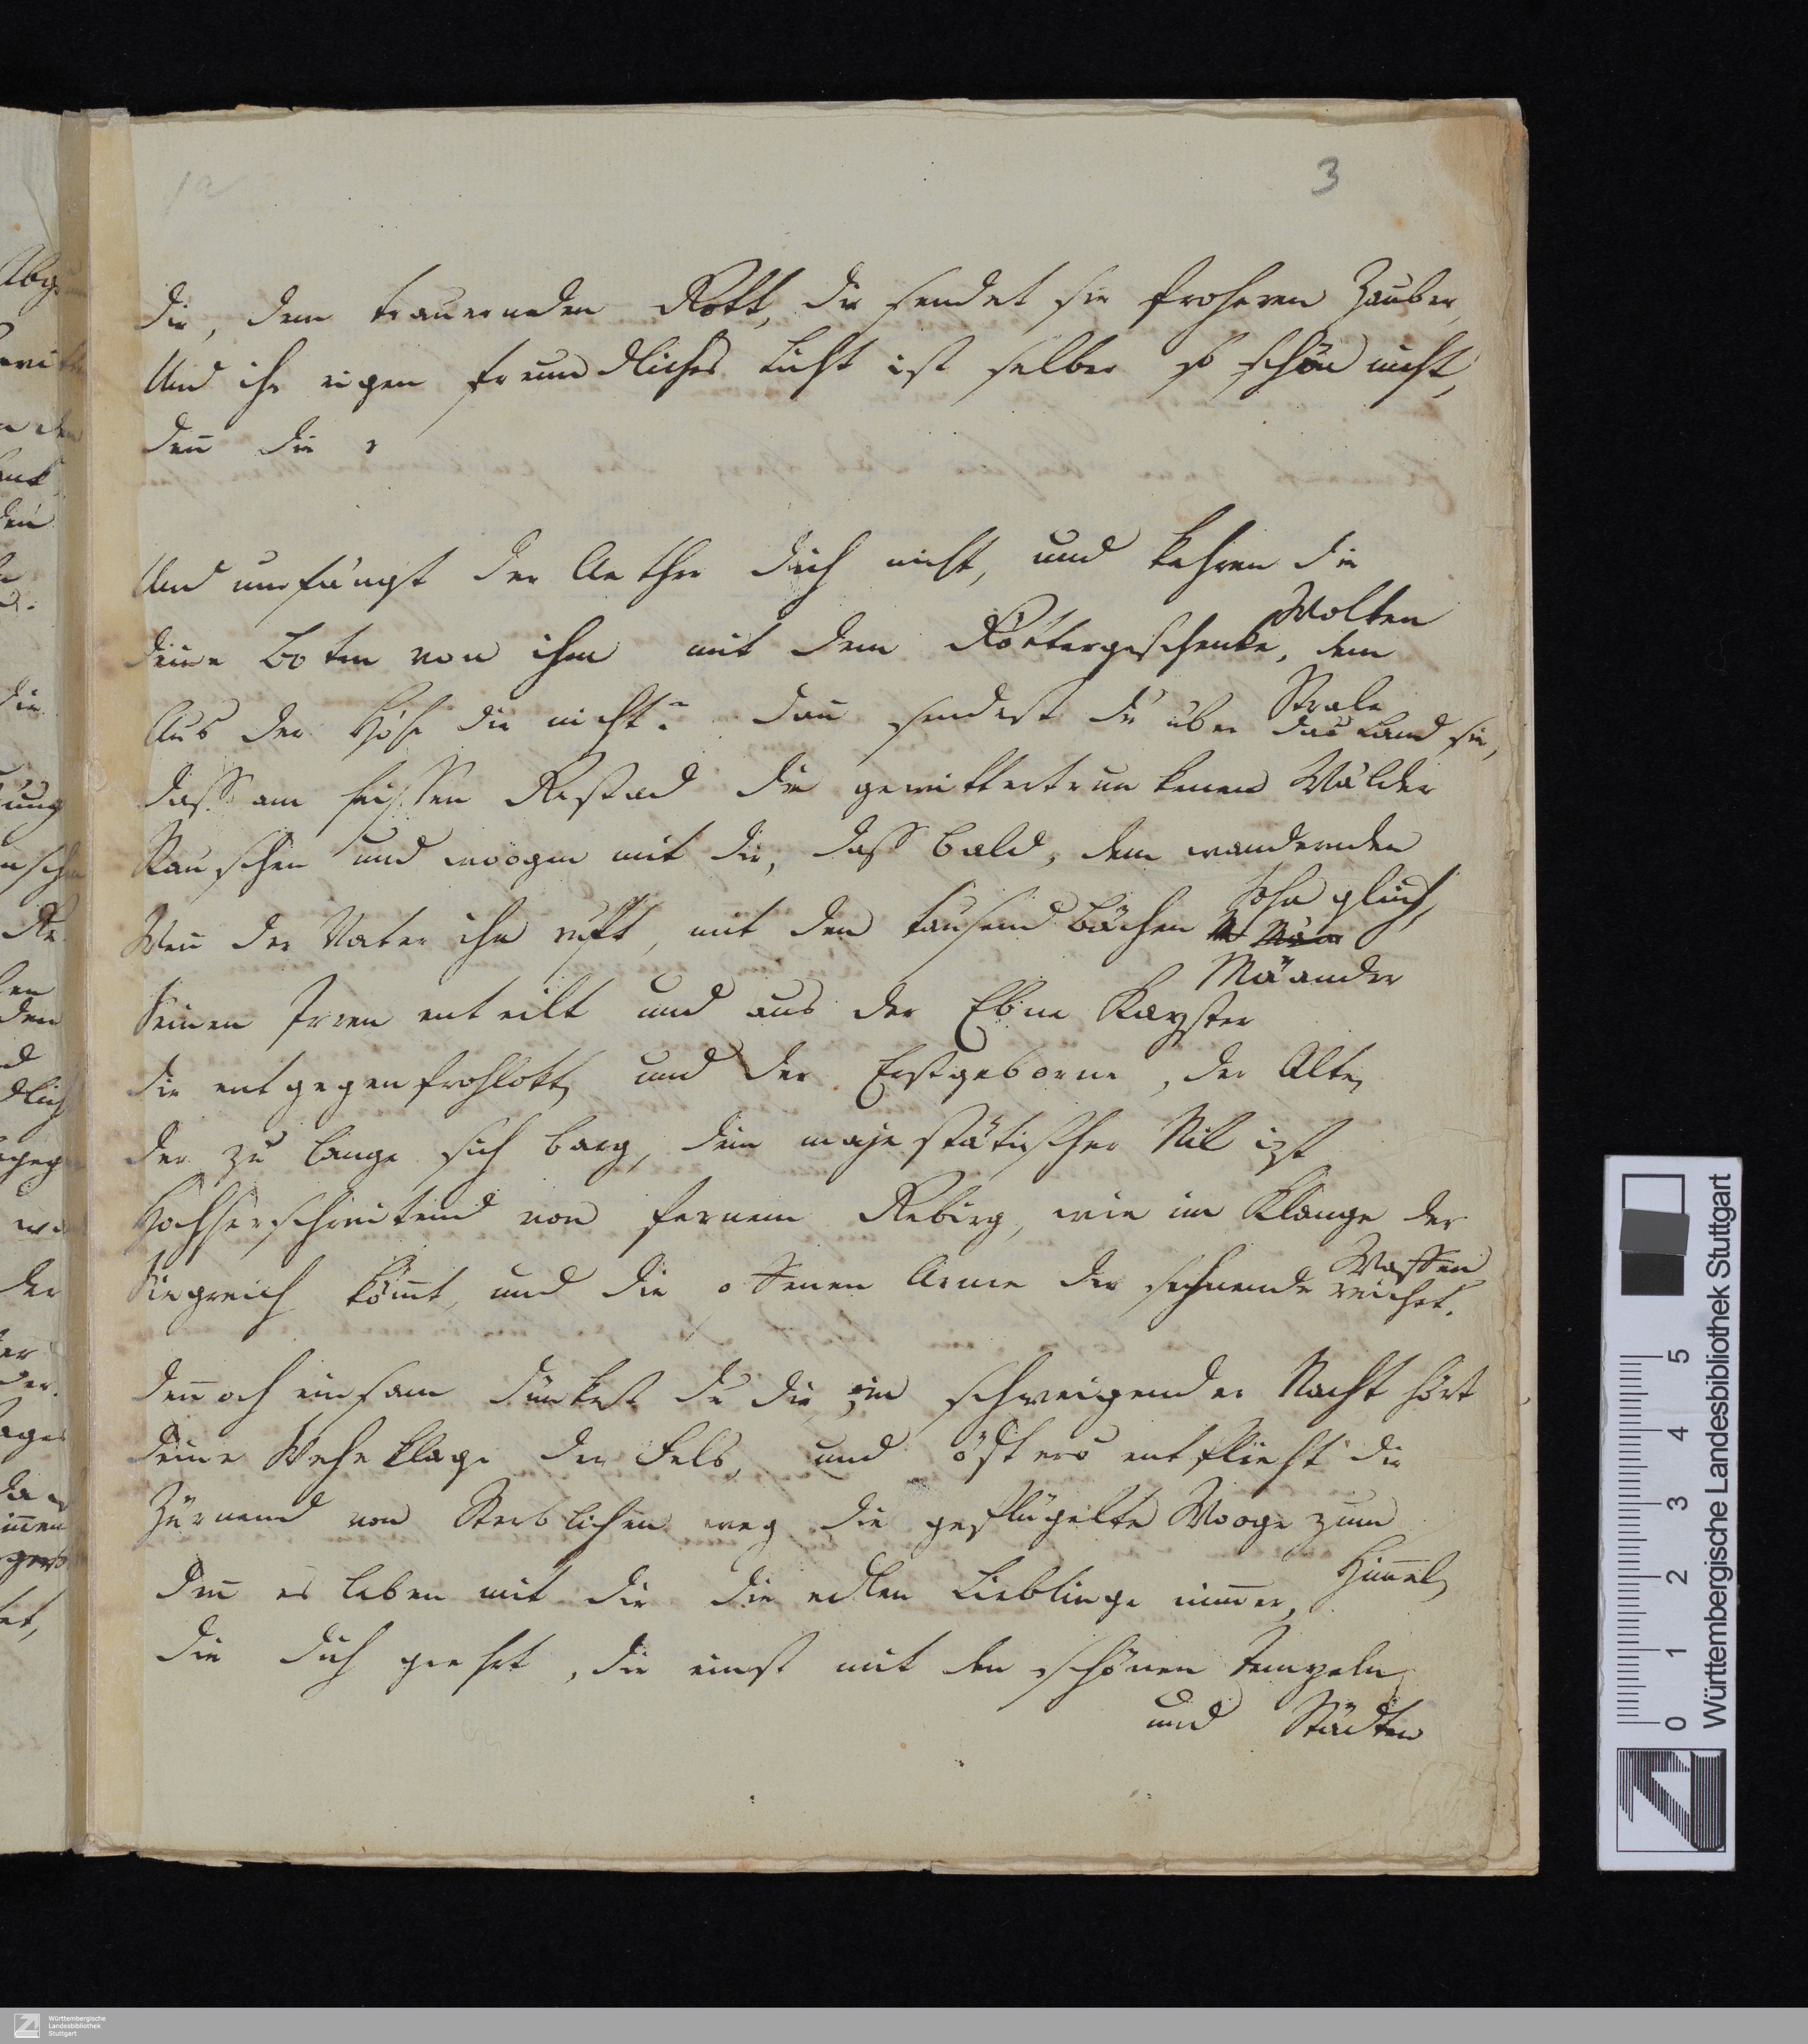 3
Dir, dem trauernden Gott, dir sendet sie froheren Zauber,
Und ihr eigen freundliches Licht ist selber so schön nicht,
Den̄ dir
Und umfängt der Aether dich nicht, und kehren die
Wolken
Deine Boten von ihm mit dem Göttergeschenke, dem
Strale
Aus der Höhe dir nicht? dan̄ sendest du über das Land sie,
Daß am heißen Gestad die gewittertrunkenen Wälder
Rauschen und woogen mit dir, daß bald, dem wandernden
Sohn gleich,
Wen̄ der Vater ihn ruft, mit den tausend Bächen
Mäander
Seinen Irren enteilt und aus der Ebne Kayster
Dir entgegenfrohlokt, und der Erstgeborne, der Alte,
Der zu lange sich barg, dein majestätischer Nil izt
Hochherschreitend von fernem Gebirg, wie im Klange der
Waffen
Siegreich köm̄t, und die offenen Arme der sehnende reichet.
Den̄och einsam dünkest du dir, in schweigender Nacht hört
Deine Weheklage der Fels, und öfters entflieht dir
Zürnend von Sterblichen weg die geflügelte Wooge zum
Him̄el,
Den̄ es leben mit dir die edlen Lieblinge nim̄er,
Die dich geehrt, die einst mit den schönen Tempeln
und Städten
0 1 2 3 4 5
Württembergische Landesbibliothek Stuttgart
Württembergische
Landesbibliothek
Stuttgart